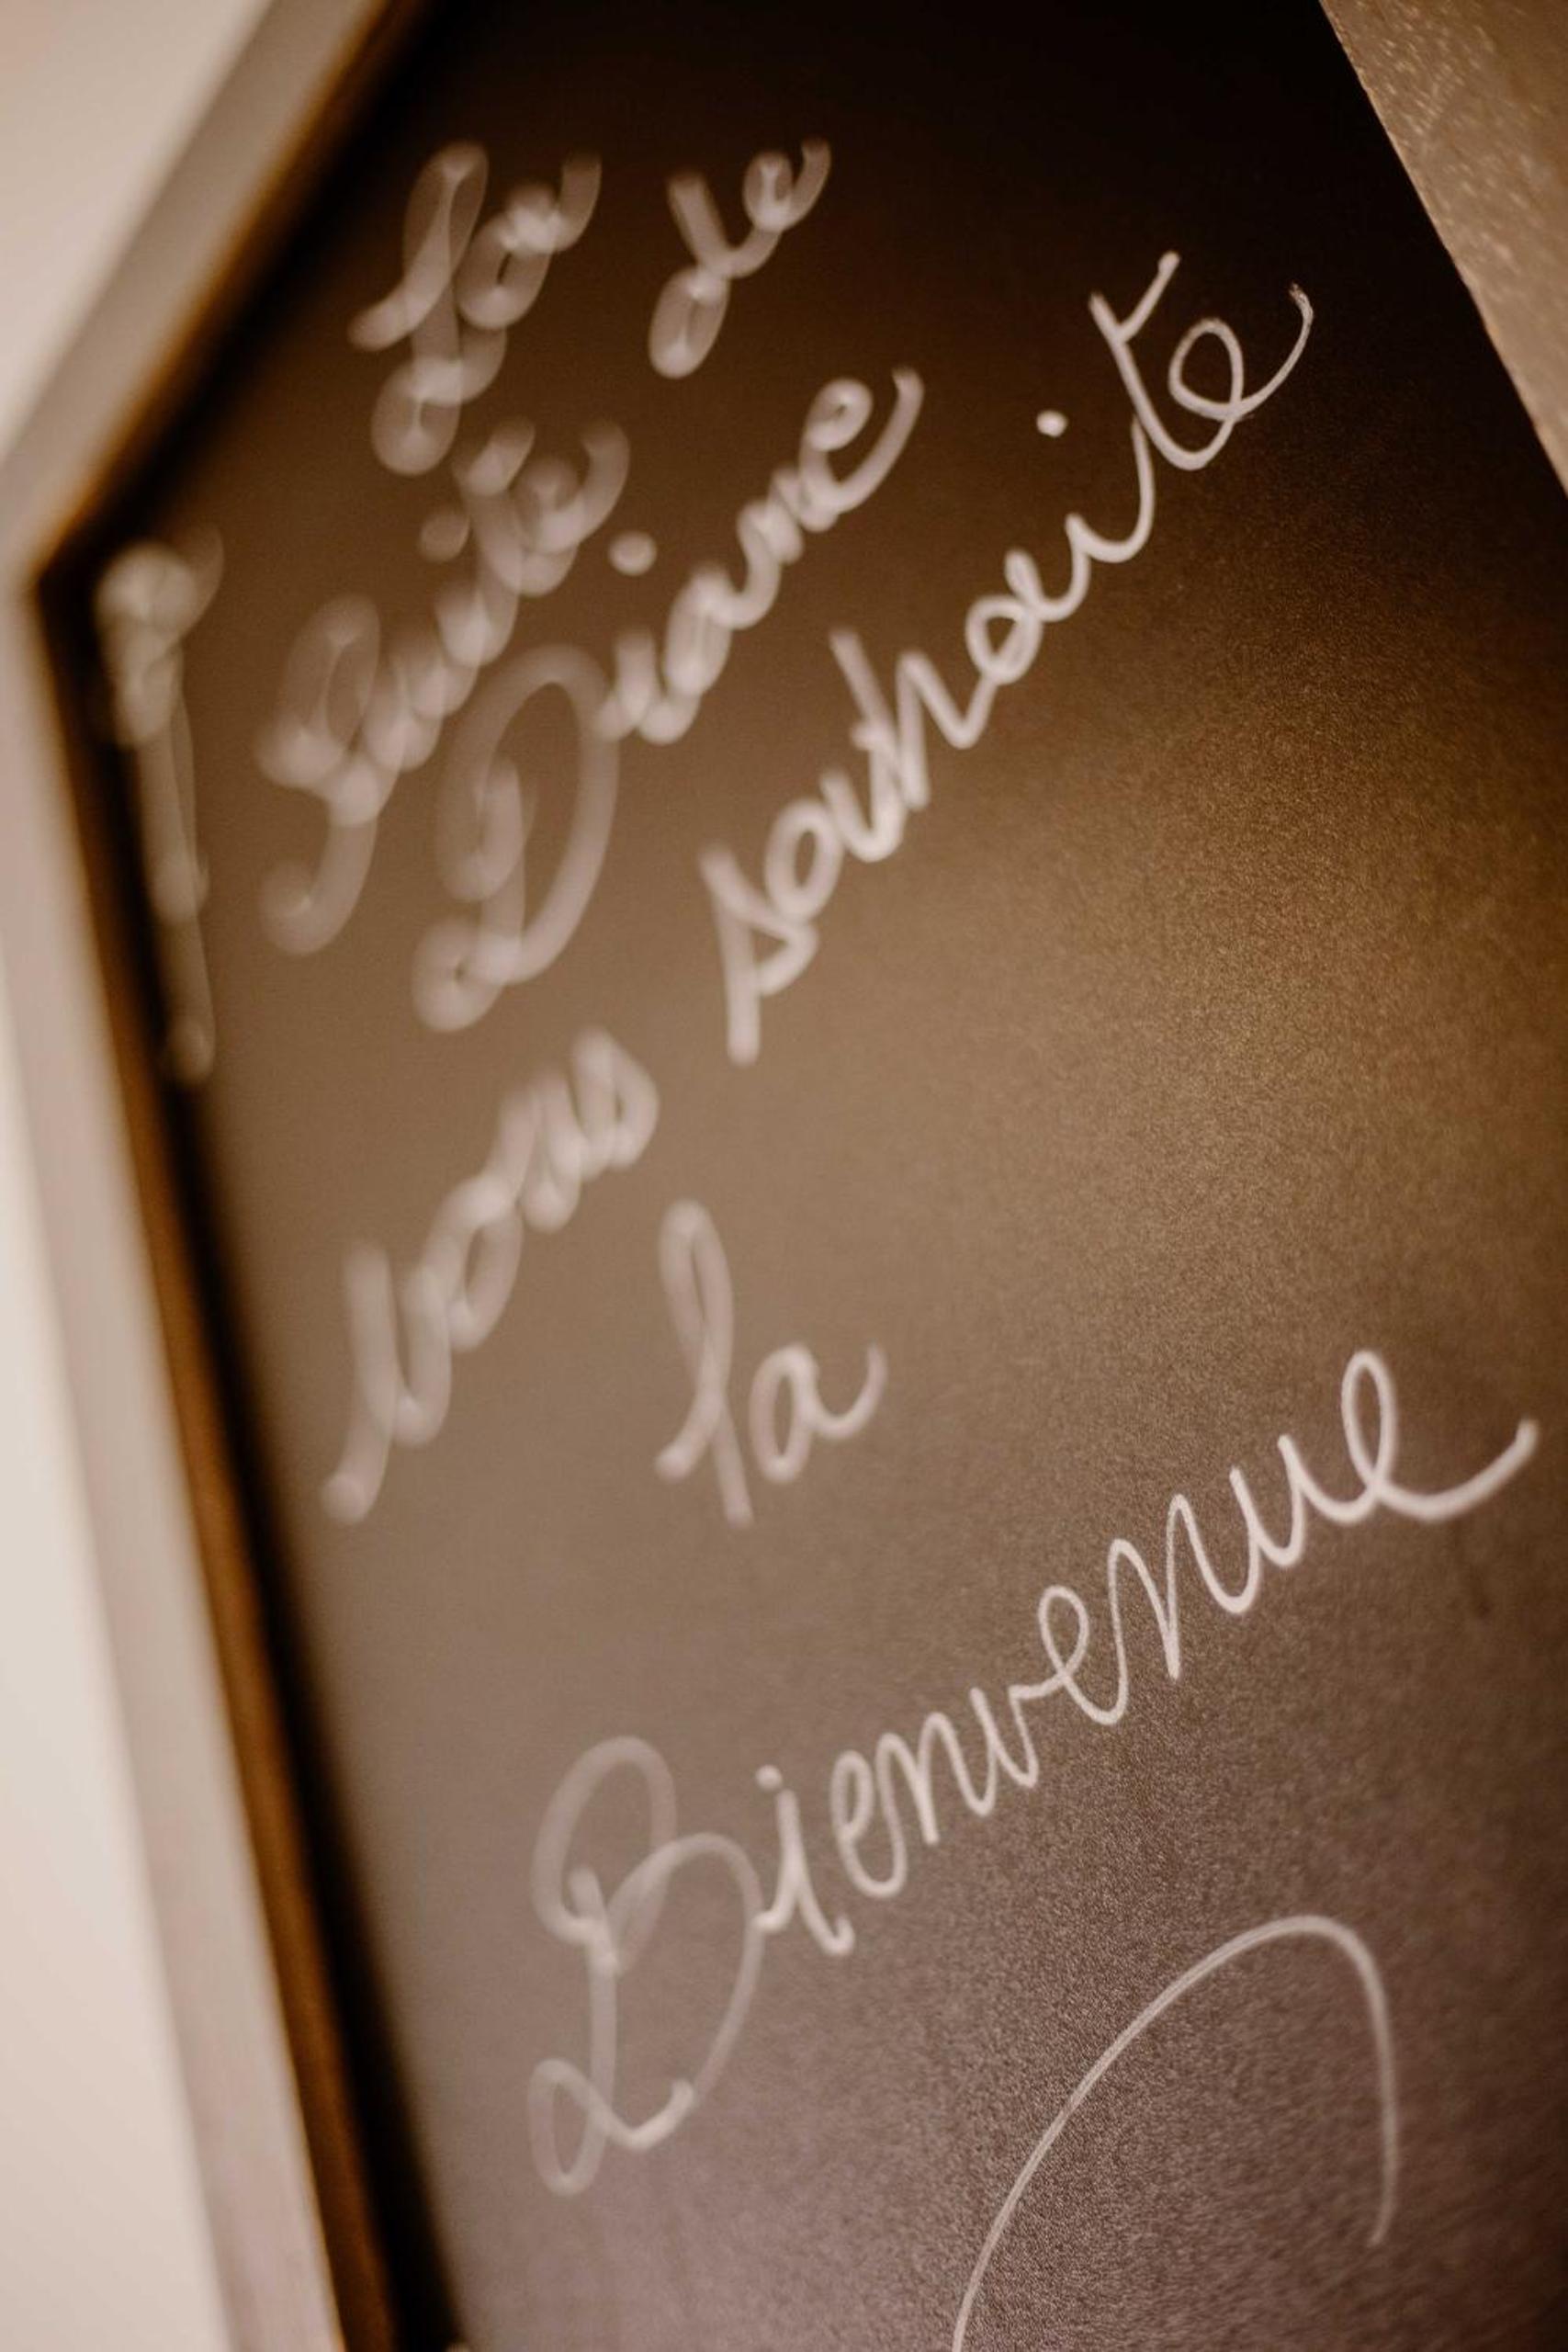 La
Suite de
Diane
vous souhaite
la
Bienvenue